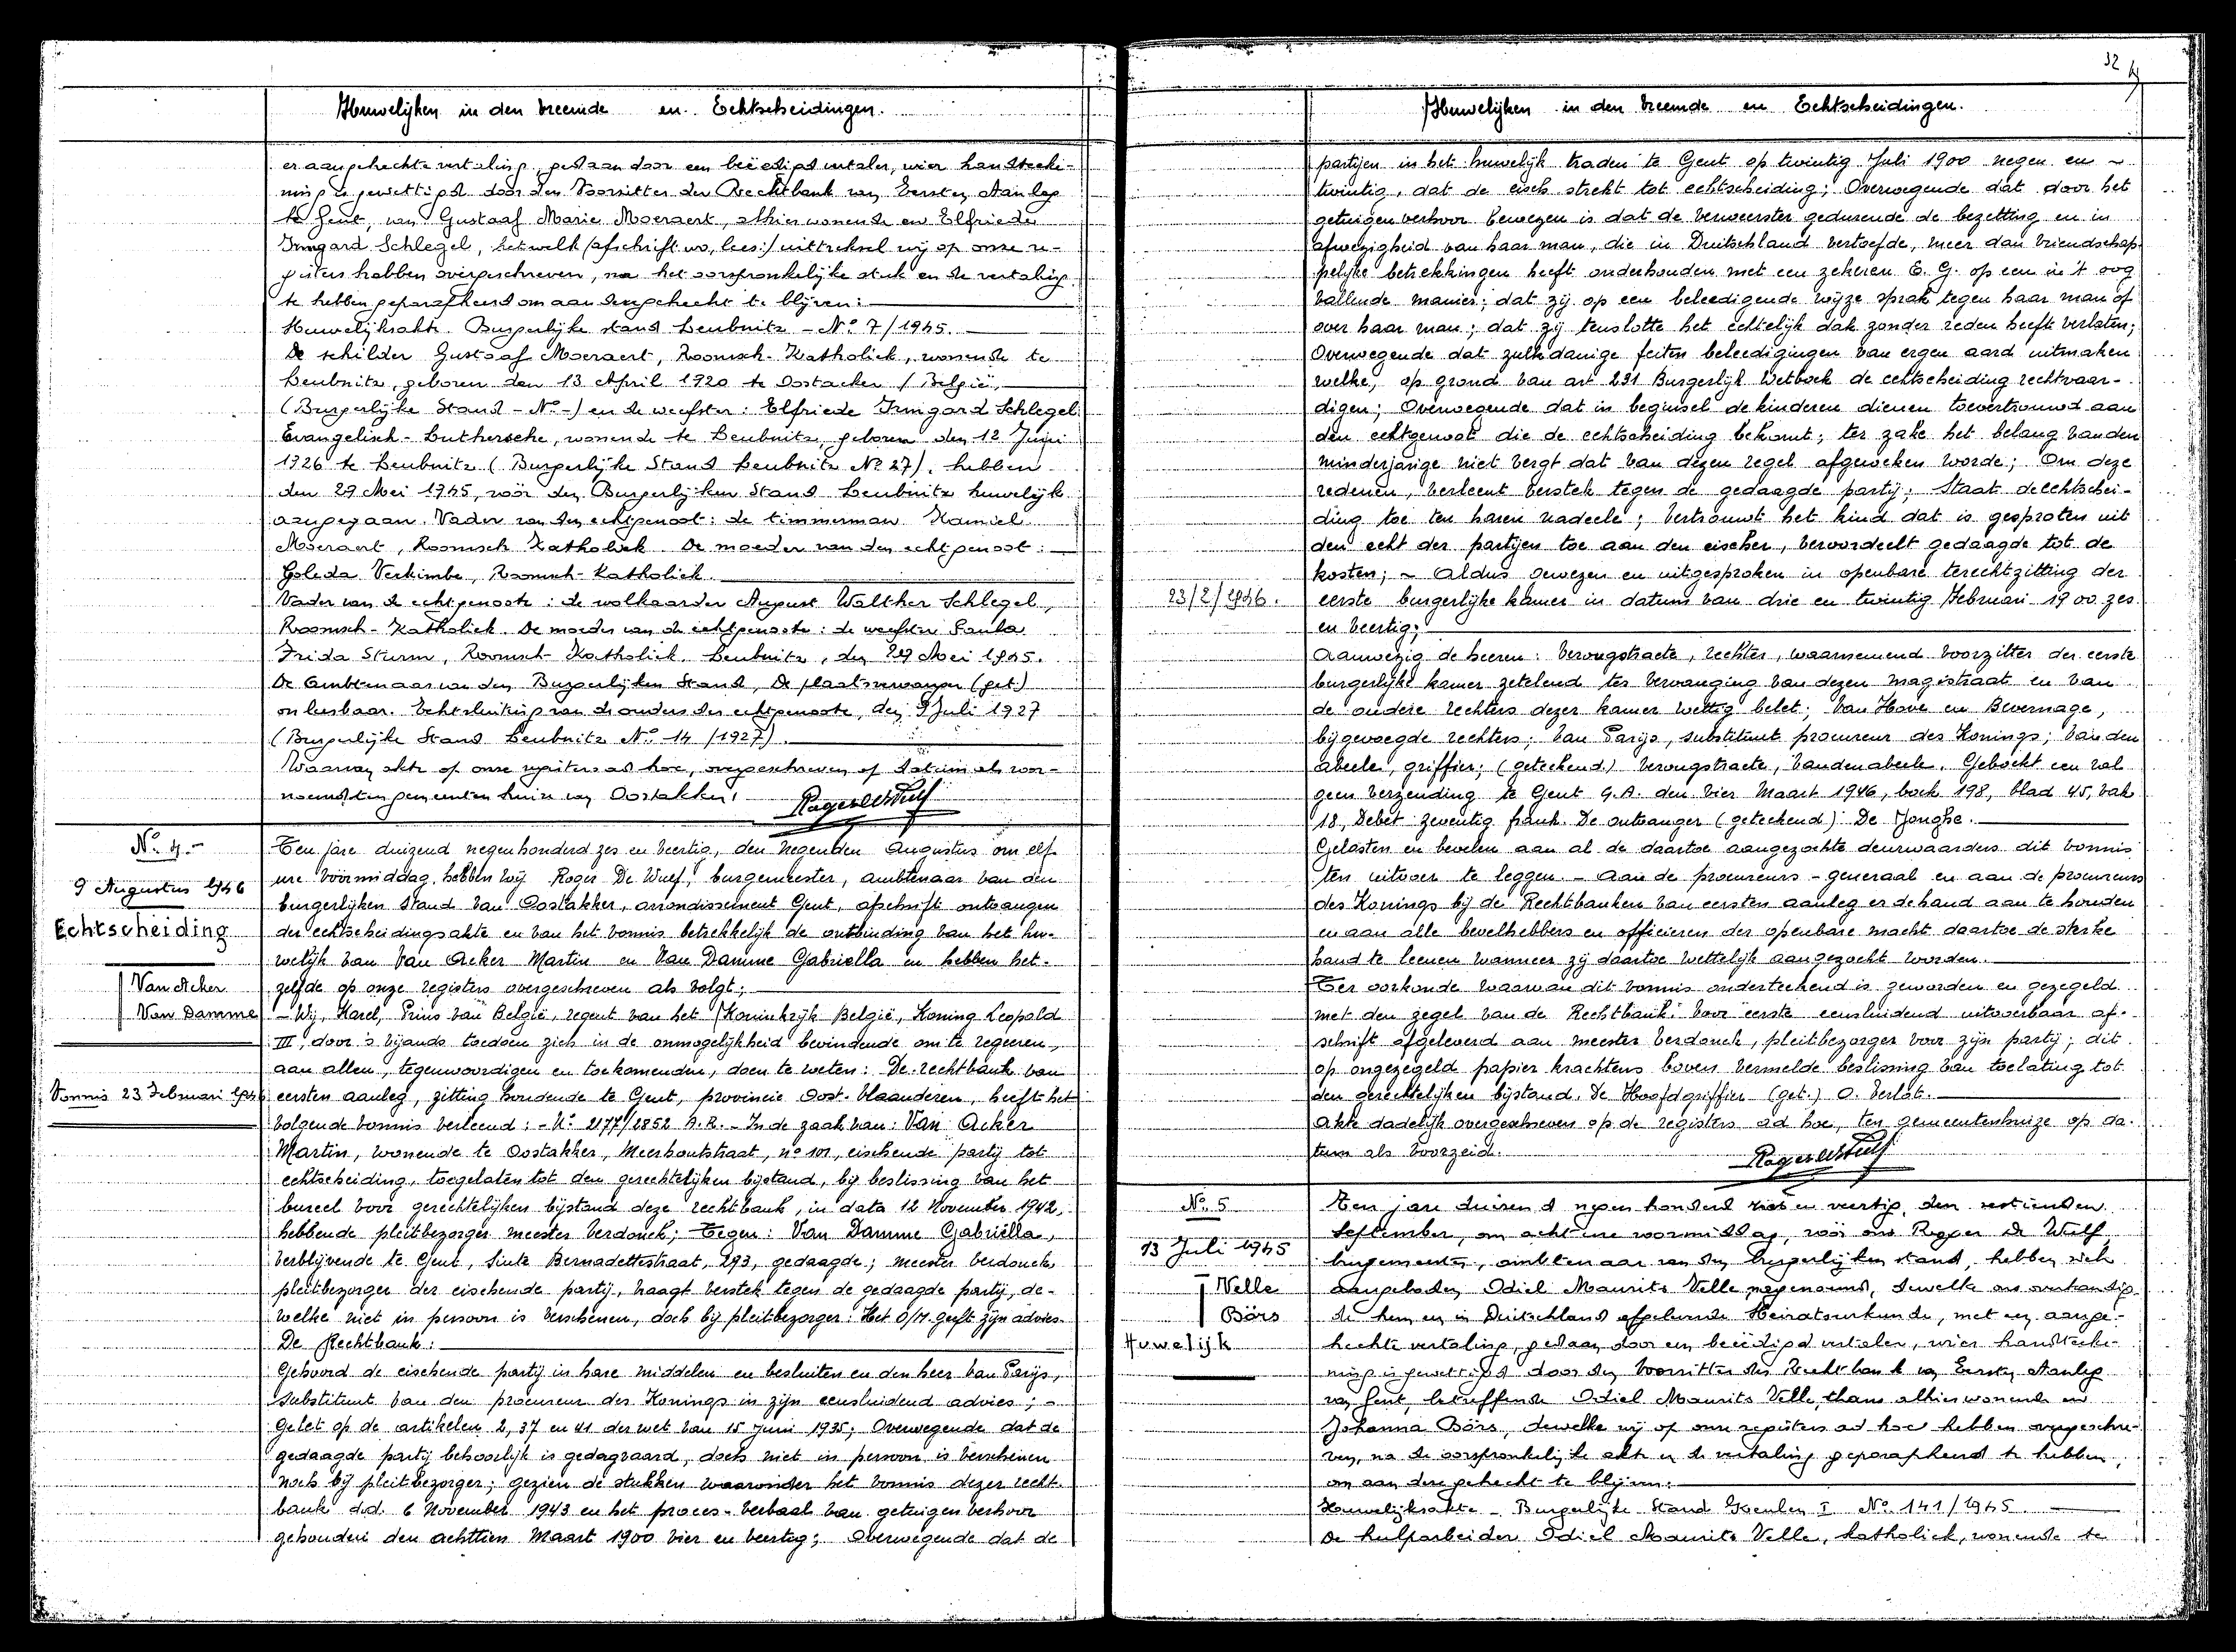 32
Huwelijken in den vreemde en Echtscheidingen.
er aangehechte vertaling, gedaan door een beëedigd vertaler, wier handteeke-
ning is gewettigd door den Voorzitter der Rechtbank van Eersten Aanleg
te Gent, van Gustaaf Marie Moeraert, alhier wonende en Elfriede
Irmgard Schlegel, hetwelk (afschrift wo, lees:) uittreksel wij op onze re-
gisters hebben overgeschreven, na het oorspronkelijke stuk en de vertaling
te hebben geparafheerd om aan dezegehecht te blijven:
Huwelijksakte. Burgerlijke stand Leubnitz - No 7/1945.
De schilder Gustaaf Moeraert, Roomsch-Katholiek, wonende te
Leubnitz, geboren den 13 April 1920 te Oostacker / België,
(Burgerlijke Stand - No -) en de weefster: Elfriede Irmgard Schlegel
Evangelisch-Luthersche, wonende te Leubnitz, geboren den 12 Juni
1926 te Leubnitz (Burgerlijke Stand Leubnitz No 27), hebben
den 29 Mei 1945, vóór den Burgerlijken Stand Leubnitz huwelijk
aangegaan. Vader van den echtgenoot: de timmerman Kamiel
Moeraert, Roomsch Katholiek. De moeder van den echtgenoot:
Goleda Verkimbe, Roomsch-Katholiek.
Vader van de echtgenoote: de wolkaarder August Walther Schlegel,
Roomsch-Katholiek. De moeder van de echtgenoote: de weefster Paula
Frida Sturm, Roomsch-Katholiek. Leubnitz, den 29 Mei 1945.
De Ambtenaar van den Burgerlijken Stand, De plaatsvervanger (get.)
onleesbaar. Echtsluiting van de ouders der echtgenoote, den 9 Juli 1927
(Burgerlijke Stand Leubnitz No 14/1927).
Waarvan akte op onze registers ad hoc, overgeschreven op datum als voor-
noemd ten gemeentenhuize van Oostakker.
Roger De Wulf
No 4.-
9 Augustus 1946
Echtscheiding
Van Acker
Van Damme
Vonnis 23 Februari 1946
Ten jare duizend negenhonderd zes en veertig, den negenden Augustus om elf
ure voormiddag, hebben wij Roger De Wulf, burgemeester, ambtenaar van den
burgerlijken stand van Oostakker, arrondissement Gent, afschrift ontvangen
der echtscheidingsakte en van het vonnis betrekkelijk de ontbinding van het hu-
welijk van Van Acker Martin en Van Damme Gabriella en hebben het-
zelfde op onze registers overgeschreven als volgt:
- Wij, Karel, Prins van België, regent van het Koninkrijk België, Koning Leopold
III, door 's vijands toedoen zich in de onmogelijkheid bevindende om te regeeren,
aan allen, tegenwoordigen en toekomenden, doen te weten: De rechtbank van
eersten aanleg, zitting houdende te Gent, provincie Oost-Vlaanderen, heeft het
volgende vonnis verleend: - No 2177/2852 A.R. - In de zaak van: Van Acker
Martin, wonende te Oostakker, Meerhoutstraat, no 101, eischende partij tot
echtscheiding, toegelaten tot den gerechtelijken bijstand, bij beslissing van het
bureel voor gerechtelijken bijstand deze rechtbank, in data 12 November 1942,
hebbende pleitbezorger meester Verdonck; Tegen: Van Damme Gabriëlla,
verblijvende te Gent, Sinte Bernadettestraat, 293, gedaagde; meester Verdonck
pleitbezorger der eischende partij, vraagt verstek tegen de gedaagde partij, de-
welke niet in persoon is verschenen, doch bij pleitbezorger. Het O/M. geeft zijn advies.
De Rechtbank:
Gehoord de eischende partij in hare middelen en besluiten en den heer Van Parijs,
Substituut van den procureur des Konings in zijn eensluidend advies; -
Gelet op de artikelen 2, 37 en 41 der wet van 15 Juni 1935; Overwegende dat de
gedaagde partij behoorlijk is gedagvaard, doch niet in persoon is verschenen
noch bij pleitbezorger; gezien de stukken waaronder het vonnis dezer recht-
bank d.d. 6 November 1943 en het proces-verbaal van getuigenverhoor
gehouden den achttien Maart 1900 vier en veertig; Overwegende dat de
Huwelijken in den vreemde en Echtscheidingen.
partijen in het huwelijk traden te Gent op twintig Juli 1900 negen en ~
twintig, dat de eisch strekt tot echtscheiding; Overwegende dat door het
getuigenverhoor bewezen is dat de verweerster gedurende de bezetting en in
afwezigheid van haar man, die in Duitschland vertoefde, meer dan vriendschap-
pelijke betrekkingen heeft onderhouden met een zekeren E. G. op een in 't oog
vallende manier; dat zij op een beleedigende wijze sprak tegen haar man of
over haar man; dat zij tenslotte het echtelijk dak zonder reden heeft verlaten;
Overwegende dat zulkdanige feiten beleedigingen van ergen aard uitmaken
welke, op grond van art 231 Burgerlijk Wetboek de echtscheiding rechtvaar-
digen; Overwegende dat in beginsel de kinderen dienen toevertrouwd aan
den echtgenoot die de echtscheiding bekomt; ter zake het belang van den
minderjarige niet vergt dat van dezen regel afgeweken worde; Om deze
redenen, verleent verstek tegen de gedaagde partij; Staat de echtschei-
ding toe ten haren nadeele; Vertrouwt het kind dat is gesproten uit
den echt der partijen toe aan den eischer, veroordeelt gedaagde tot de
kosten; ~ Aldus gewezen en uitgesproken in openbare terechtzitting der
23/2/1946.
eerste burgerlijke kamer in datum van drie en twintig Februari 1900 zes
en veertig;
Aanwezig de heeren: Verougstraete, rechter, waarnemend voorzitter der eerste
burgerlijke kamer zetelend ter vervanging van dezen magistraat en van
de oudere rechters dezer kamer wettig belet; Van Hove en Bevernage,
bijgevoegde rechters; Van Parijs, substituut procureur des Konings; Van den
abeele, griffier; (geteekend) Verougstraete, Vandenabeele. Geboekt een rol
geen verzending te Gent G.A. den vier Maart 1946, boek 198, blad 45, vak
18, Debet: zeventig frank. De ontvanger (geteekend) De Jonghe.
Gelasten en bevelen aan al de daartoe aangezochte deurwaarders dit vonnis
ten uitvoer te leggen. - Aan de procureurs-generaal en aan de procureurs
des Konings bij de Rechtbanken van eersten aanleg er de hand aan te houden
en aan alle bevelhebbers en officieren der openbare macht daartoe de sterke
hand te leenen wanneer zij daartoe wettelijk aangezocht worden.
Ter oorkonde waarvan dit vonnis onderteekend is geworden en gezegeld
met den zegel van de Rechtbank. Voor eerste eensluidend uitvoerbaar af-
schrift afgeleverd aan meester Verdonck, pleitbezorger voor zijn partij; dit
op ongezegeld papier krachtens boven vermelde beslissing van toelating tot
den gerechtelijken bijstand. De Hoofdgriffier (get.) O. Verlat.
Akte dadelijk overgeschreven op de registers ad hoc, ten gemeentenhuize op da-
tum als voorzeid.
Roger De Wulf
No 5
13 Juli 1945
Velle
Börs
Huwelijk
Ten jare duizend negen honderd zes en veertig, den zestienden
September, om acht ure voormiddag, vóór ons Rogger De Wulf,
burgemeester, ambtenaar van den burgerlijken stand, hebben zich
aangeboden Odiel Maurits Velle nagenoemd, dewelke ons overhandig-
de hem en in Duitschland afgeleverde Heiratsurkunde, met een aange-
hechte vertaling, gedaan door een beëedigd vertaler, wier handteeke-
ning is gewettigd door den Voorzitter der Rechtbank van Eersten Aanleg
van Gent, betreffende Odiel Maurits Velle, thans alhier wonende en
Johanna Börs, dewelke wij op onze registers ad hoc hebben overgeschre-
ven, na de oorspronkelijke akte en de vertaling geparapheerd te hebben,
om aan deze gehecht te blijven:
Huwelijksakte - Burgerlijke Stand Keulen I No 141/1945
De hulparbeider Odiel Maurits Velle, katholiek, wonende te